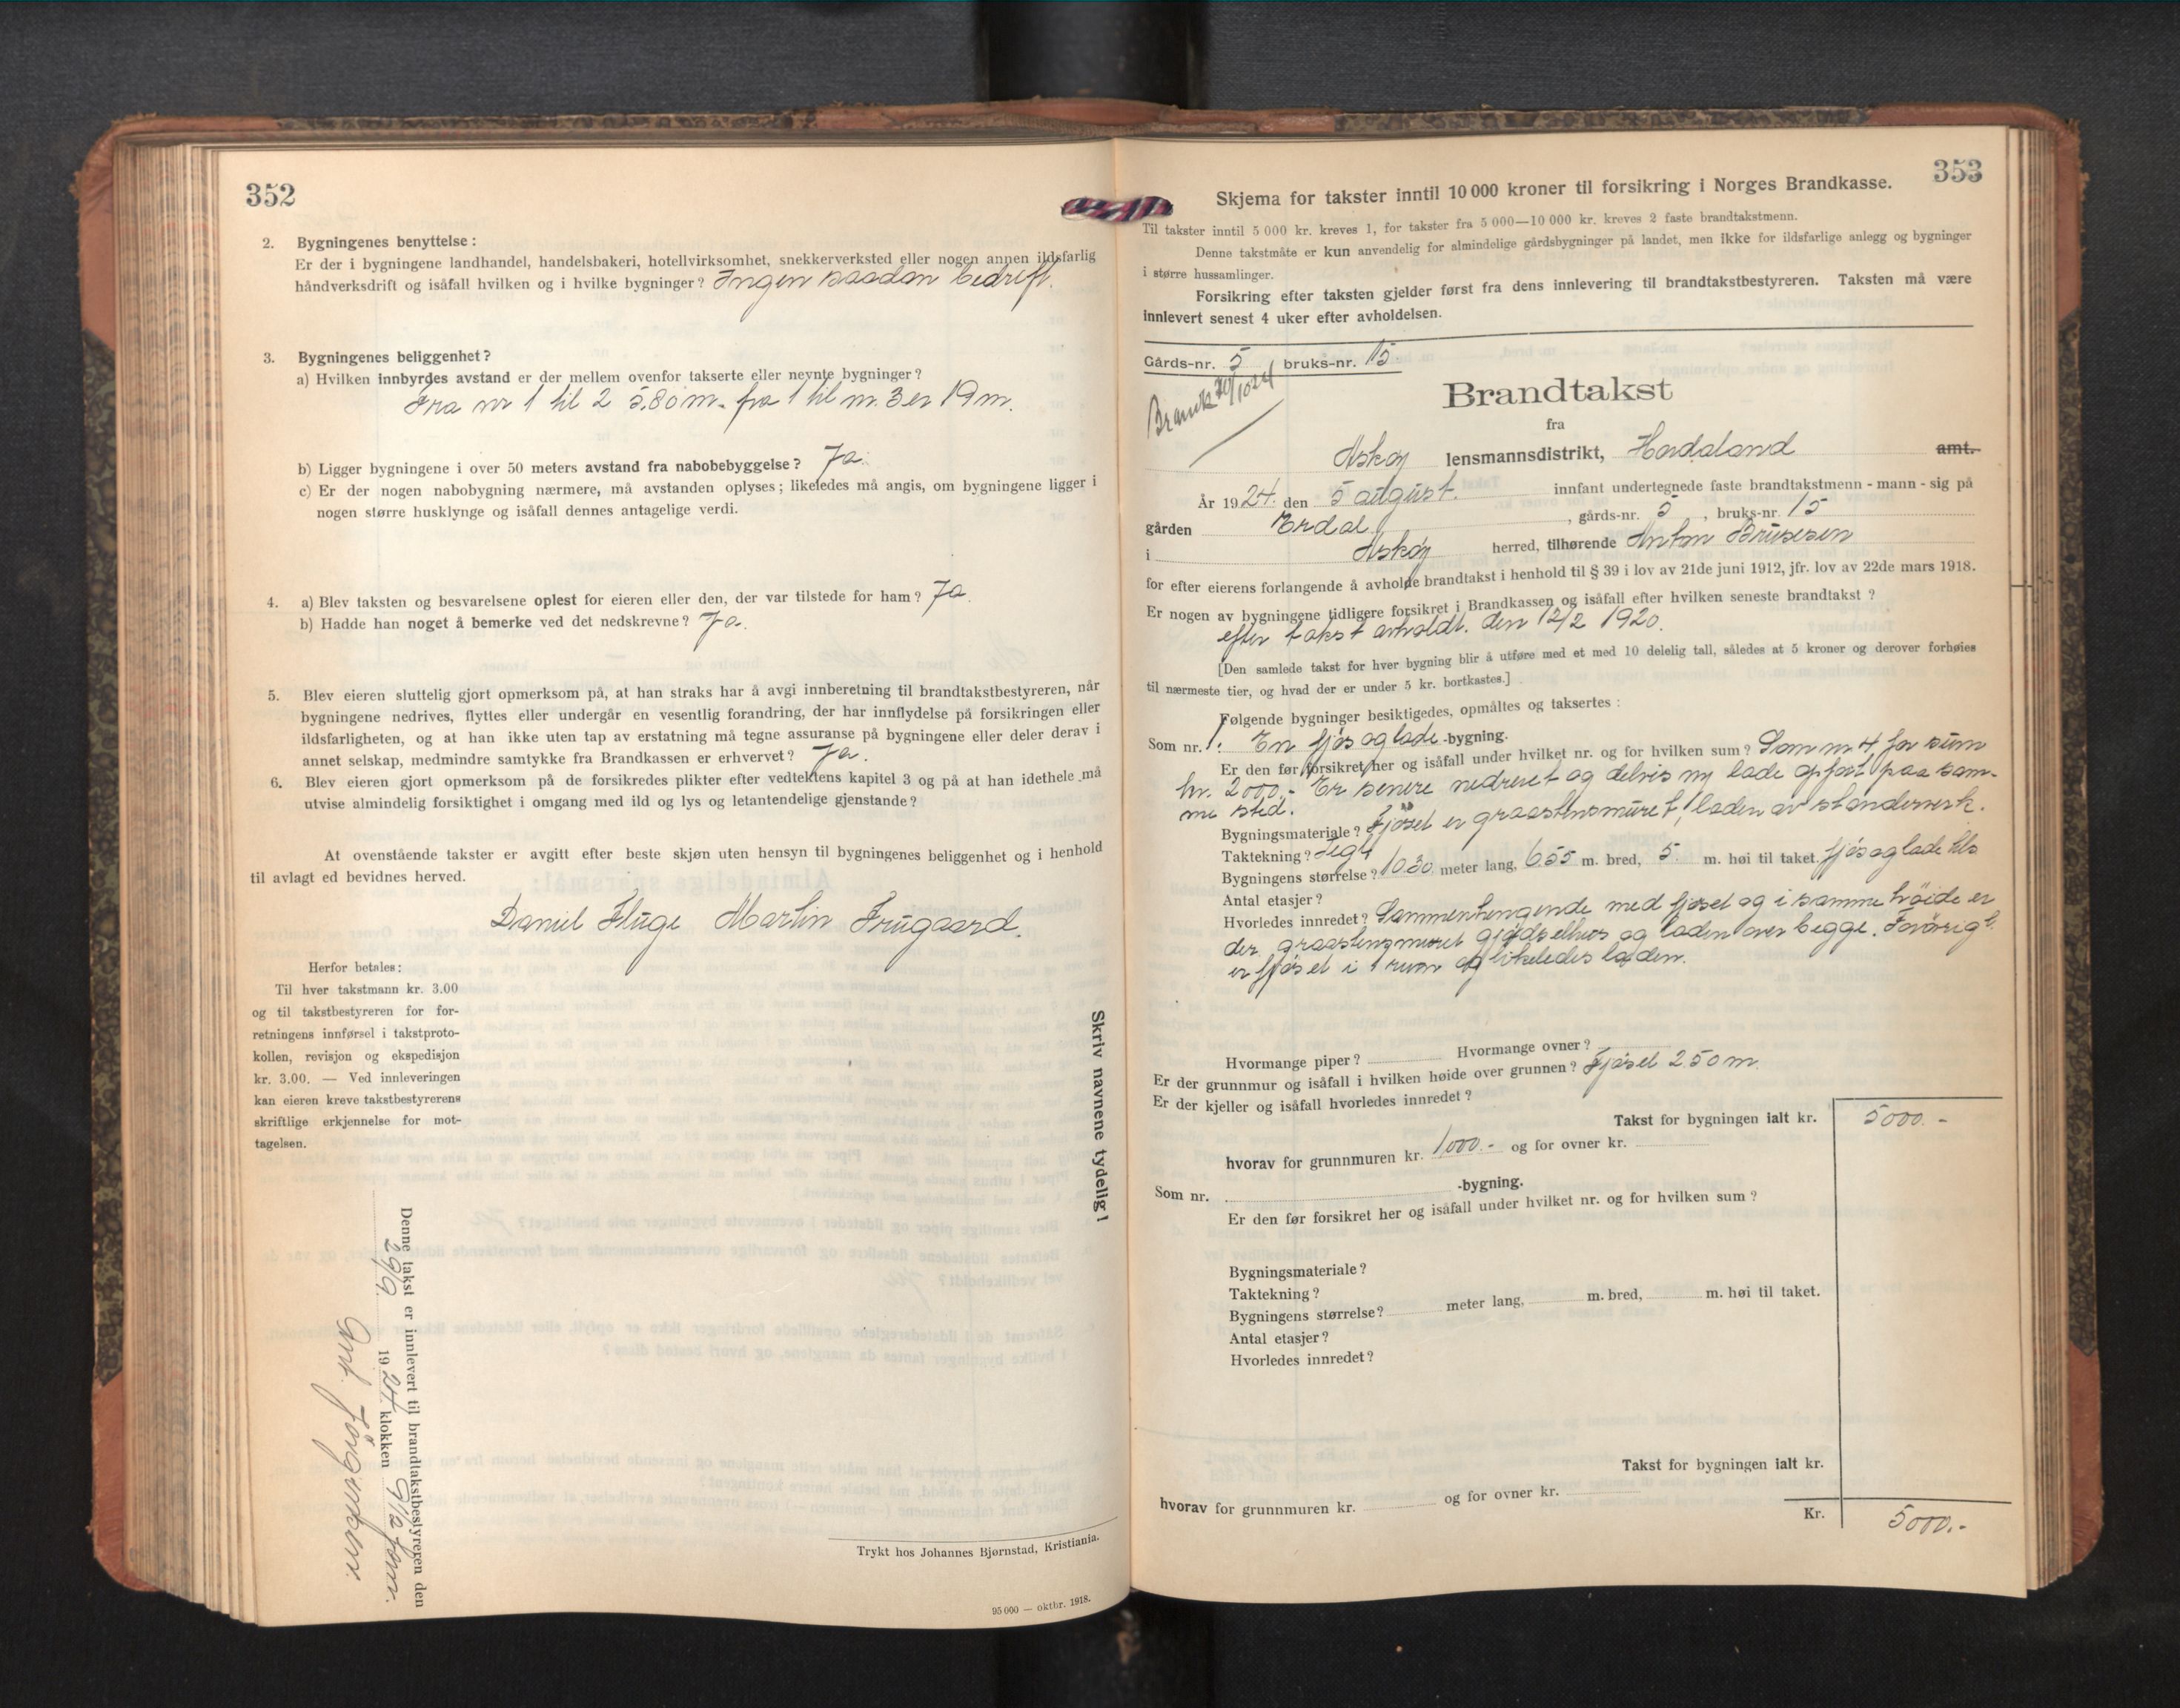 352
2. Bygningenes benyttelse:
Er der i bygningene landhandel, handelsbakeri, hotellvirksomhet, snekkerverksted eller nogen annen ildsfarlig
håndverksdrift og isåfall hvilken og i hvilke bygninger? Ingen saadan bedrift.
3. Bygningenes beliggenhet?
a) Hvilken innbyrdes avstand er der mellem ovenfor takserte eller nevnte bygninger?
Fra nr 1 til 2 5.80 m. fra 1 til nr. 3 er 19 m.
b) Ligger bygningene i over 50 meters avstand fra nabobebyggelse? Ja.
c) Er der nogen nabobygning nærmere, må avstanden oplyses; likeledes må angis, om bygningene ligger i
nogen større husklynge og isåfall dennes antagelige verdi.
4. a) Blev taksten og besvarelsene oplest for eieren eller den, der var tilstede for ham? Ja.
b) Hadde han noget å bemerke ved det nedskrevne? Ja.
5. Blev eieren sluttelig gjort opmerksom på, at han straks har å avgi innberetning til brandtakstbestyreren, når
bygningene nedrives, flyttes eller undergår en vesentlig forandring, der har innflydelse på forsikringen eller
ildsfarligheten, og at han ikke uten tap av erstatning må tegne assuranse på bygningene eller deler derav i
annet selskap, medmindre samtykke fra Brandkassen er erhvervet? Ja.
6. Blev eieren gjort opmerksom på de forsikredes plikter efter vedtektens kapitel 3 og på at han idethele må
utvise almindelig forsiktighet i omgang med ild og lys og letantendelige gjenstande?
At ovenstående takster er avgitt efter beste skjøn uten hensyn til bygningenes beliggenhet og i henhold
til avlagt ed bevidnes herved.
Daniel Fluge Martin Frugaard.
Herfor betales:
Til hver takstmann kr. 3.00
og til takstbestyreren for for-
retningens innførsel i takstproto-
kollen, revisjon og ekspedisjon
kr. 3.00. — Ved innleveringen
kan eieren kreve takstbestyrerens
skriftlige erkjennelse for mot-
tagelsen.
Skriv navnene tydelig!
Denne takst er innlevert til brandtakstbestyreren den
29/9. 1924. klokken 9 1/2 fom.
Trykt hos Johannes Bjørnstad, Kristiania.
95 000 — oktbr. 1918.
353
Skjema for takster inntil 10 000 kroner til forsikring i Norges Brandkasse.
Til takster inntil 5 000 kr. kreves 1, for takster fra 5 000—10 000 kr. kreves 2 faste brandtakstmenn.
Denne takstmåte er kun anvendelig for almindelige gårdsbygninger på landet, men ikke for ildsfarlige anlegg og bygninger
i større hussamlinger.
Forsikring efter taksten gjelder først fra dens innlevering til brandtakstbestyreren. Taksten må være
innlevert senest 4 uker efter avholdelsen.
Gårds-nr. 5 bruks-nr. 15.
Brandtakst
fra
Askøy lensmannsdistrikt, Hordaland amt.
År 1924. den 5 august. innfant undertegnede faste brandtakstmenn - mann - sig på
gården Erdal, gårds-nr. 5, bruks-nr. 15
i Askøy herred, tilhørende Anton Brusesen
for efter eierens forlangende å avholde brandtakst i henhold til § 39 i lov av 21de juni 1912, jfr. lov av 22de mars 1918.
Er nogen av bygningene tidligere forsikret i Brandkassen og isåfall efter hvilken seneste brandtakst?
efter takst avholdt. den 12/2 1920.
[Den samlede takst for hver bygning blir å utføre med et med 10 delelig tall, således at 5 kroner og derover forhøies
til nærmeste tier, og hvad der er under 5 kr. bortkastes.]
Følgende bygninger besiktigedes, opmåltes og taksertes:
Som nr. 1. En fjøs og lade -bygning.
Er den før forsikret her og isåfall under hvilket nr. og for hvilken sum? Som nr 4 for sum
kr. 2000,- Er senere nedrevet og delvis ny lade opført paa sam-
me sted.
Bygningsmateriale? Fjøset er graastensmuret, laden av standerverk.
Taktekning? Tegl
Bygningens størrelse? 10.30 meter lang, 6.55 m. bred, 5. m. høi til taket. fjøs og lade tils
Antal etasjer?
Hvorledes innredet? Sammenhengende med fjøset og i samme høide er
der graastensmuret gjødselhus og laden over begge. Forøvrigt
er fjøset i 1 rum og likeledes laden.
Hvormange piper? Hvormange ovner?
Er der grunnmur og isåfall i hvilken høide over grunnen? Fjøset 2.50 m.
Er der kjeller og isåfall hvorledes innredet?
Takst for bygningen ialt kr. 5000.-
hvorav for grunnmuren kr. 1,000.- og for ovner kr.
Som nr. -bygning.
Er den før forsikret her og isåfall under hvilket nr. og for hvilken sum?
Bygningsmateriale?
Taktekning?
Bygningens størrelse? meter lang, m. bred, m. høi til taket.
Antal etasjer?
Hvorledes innredet?
Takst for bygningen ialt kr.
hvorav for grunnmuren kr. og for ovner kr.
Kr. 5000.-